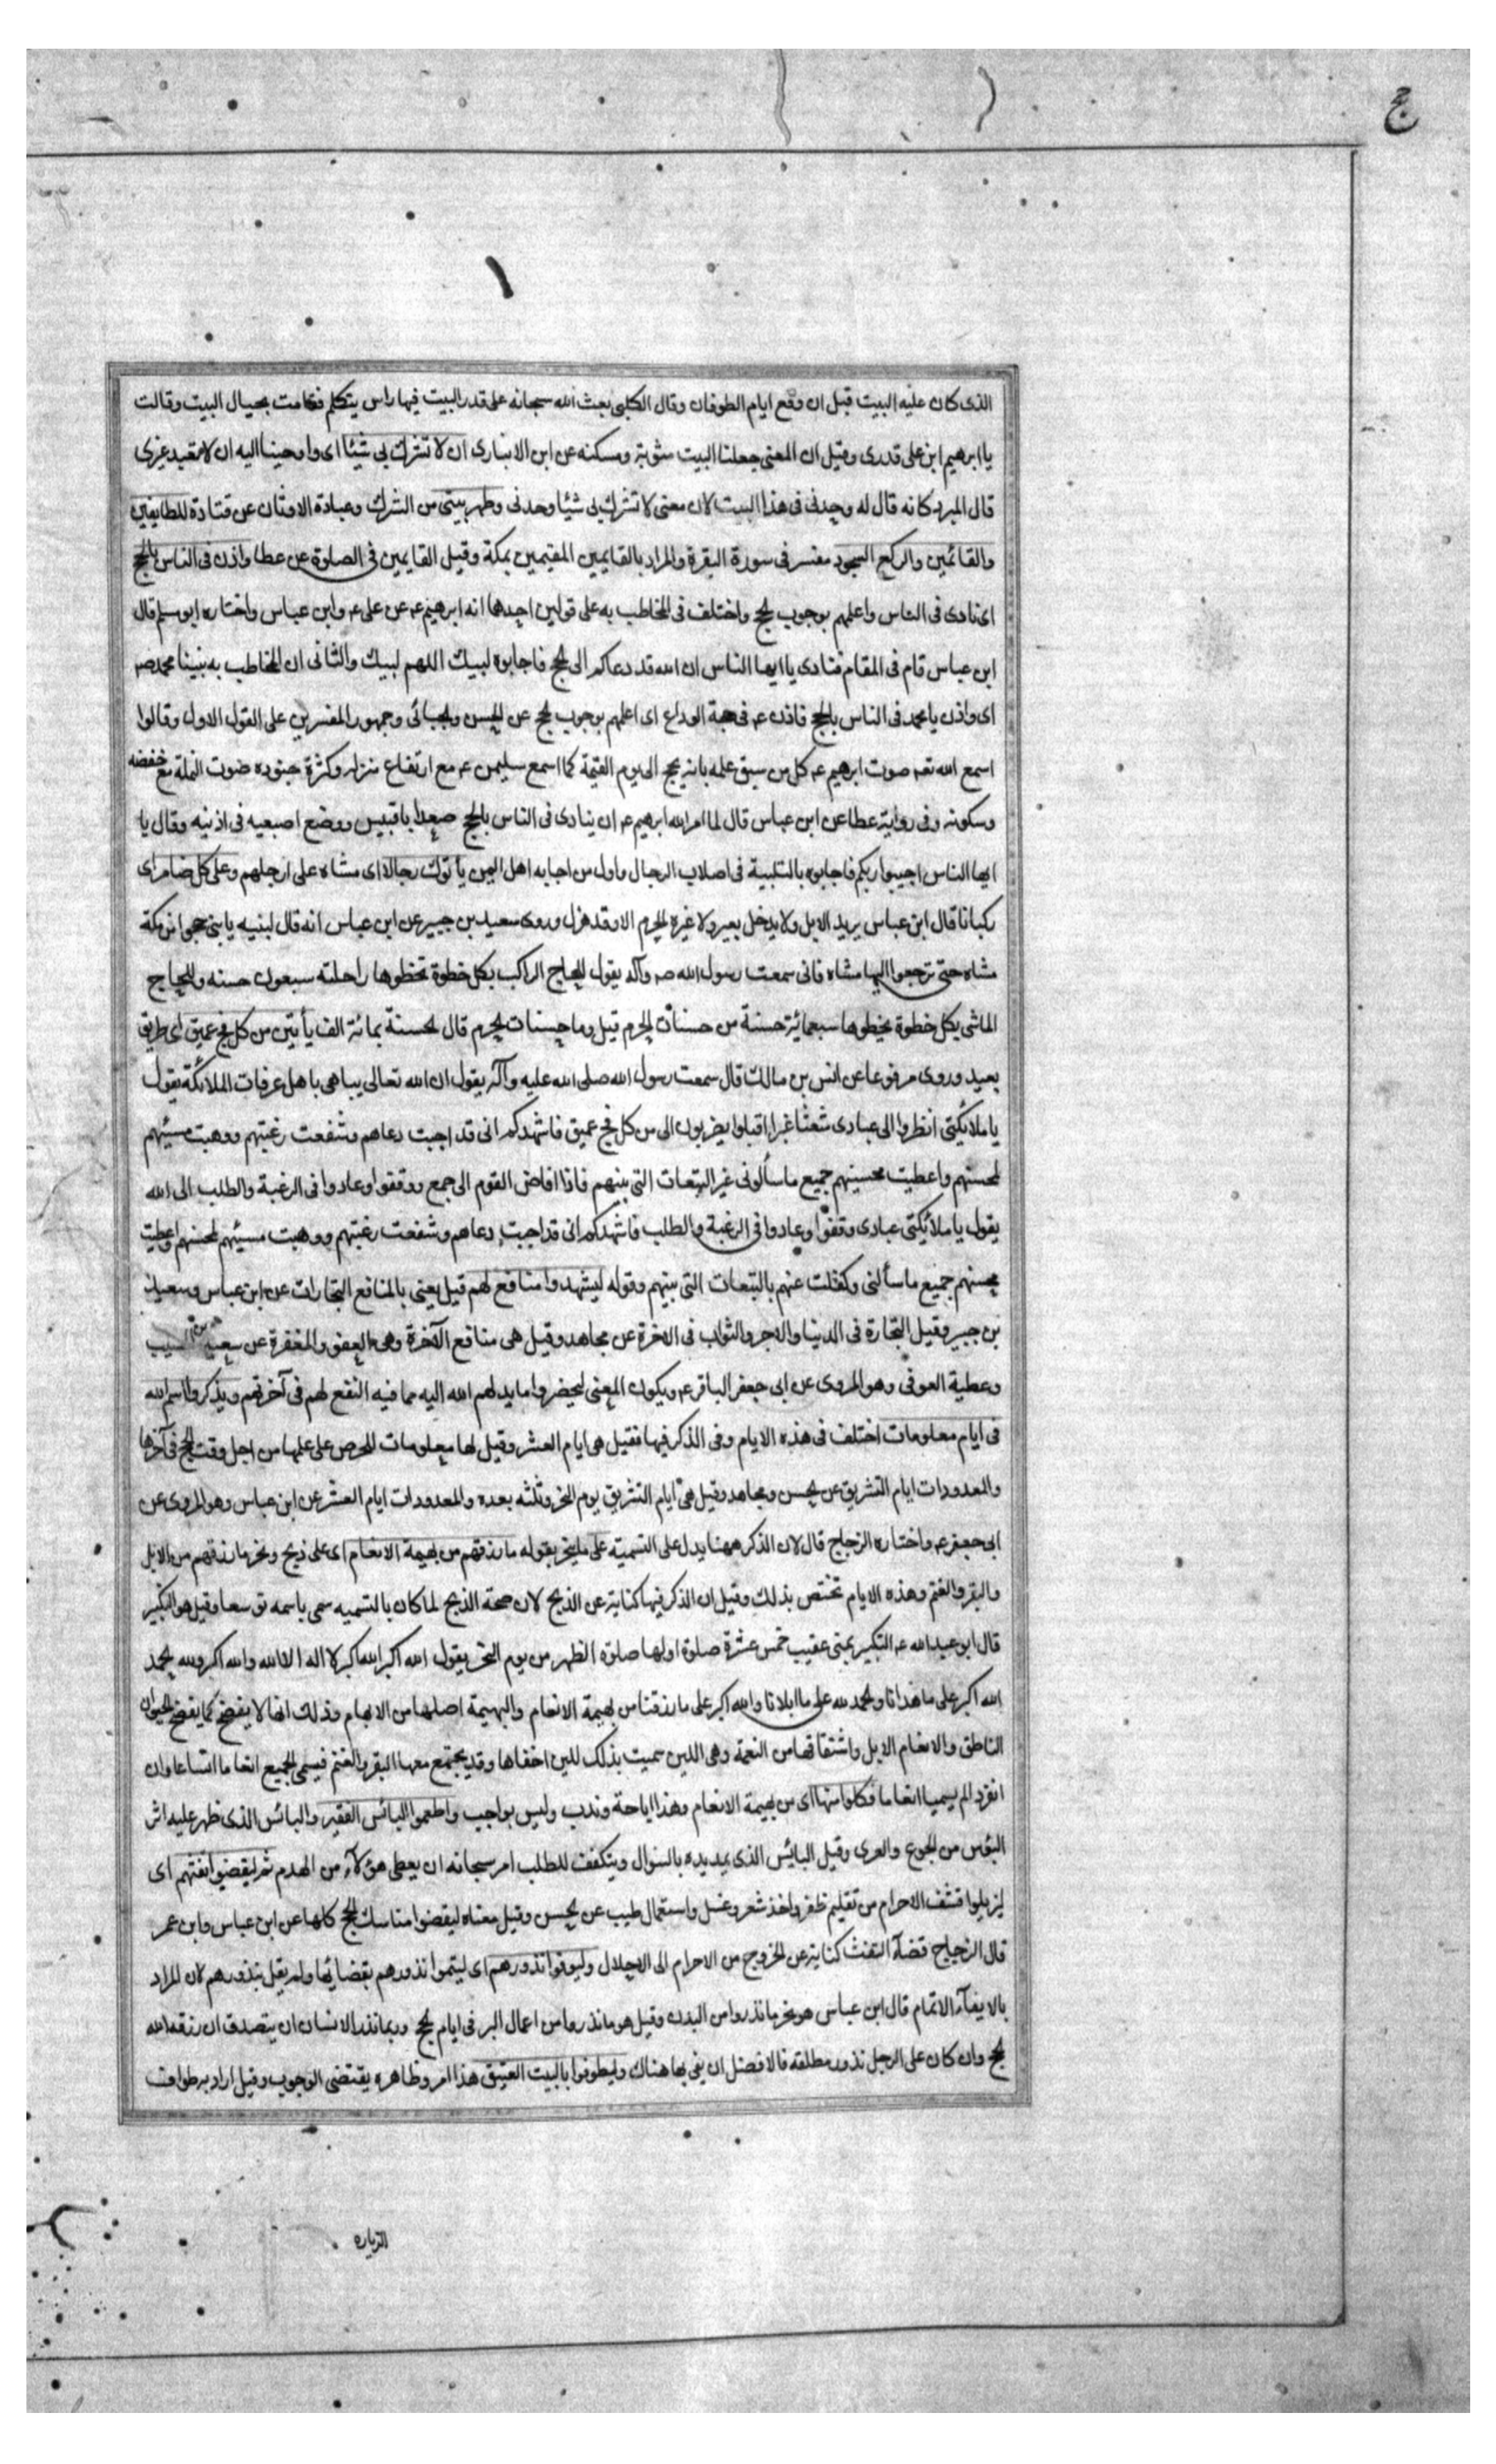 ج
الذى كان عليه البيت قبل ان وقع ايام الطوفان وقال الكلبى بعث الله سبحانه على قدر البيت فيها راس يتكلم فقامت بحيال البيت وقالت
يا ابرهيم ابن على قدرى وقيل ان المعنى جعلنا البيت مثوبة ومسكنه عن ابن الانبارى ان لا تشرك بى شيئا اى واوحينا اليه ان لا تعبد غيرى
قال المبرد كانه قال له وحدنى فى هذا البيت لان معنى لا تشرك بى شيئا وحدنى وطهر بيتى من الشرك وعبادة الاوثان عن قتادة للطايفين
والقائمين والركع السجود مفسر فى سورة البقرة والمراد بالقايمين المقيمين بمكة وقيل القايمين فى الصلوة عن عطا واذن فى الناس بالحج
اى نادى فى الناس واعلمهم بوجوب الحج واختلف فى المخاطب به على قولين احدها انه ابرهيم عـ عن على عـ وابن عباس واختاره ابو مسلم قال
ابن عباس قام فى المقام فنادى يا ايها الناس ان الله قد دعاكم الى الحج فاجابوه لبيك اللهم لبيك والثانى ان المخاطب به نبينا محمد صـ
اى واذن يا محمد فى الناس بالحج فاذن عـ فى حجة الوداع اى اعلمهم بوجوب الحج عن الحسن والجبائى وجمهور المفسرين على القول الاول وقالوا
اسمع الله تعـ صوت ابرهيم عـ كل من سبق علمه بانه يحج الى يوم القيمة كما اسمع سليمن عـ مع ارتفاع منزله وكثرة جنوده صوت النملة مع خفضه
وسكونه وفى رواية عطا عن ابن عباس قال لما امر الله ابرهيم عـ ان ينادى فى الناس بالحج صعد ابا قبيس ووضع اصبعيه فى اذنيه وقال يا
ايها الناس اجيبوا ربكم فاجابوه بالتلبية فى اصلاب الرجال واول من اجابه اهل اليمن يأتوك رجالا اى مشاه على ارجلهم وعلى كل ضامر اى
ركبانا قال ابن عباس يريد الابل ولا يدخل بعير ولا غيره الحرم الا وقد هزل وروى سعيد بن جبير عن ابن عباس انه قال لبنيه يا بنى حجوا من مكة
مشاه حتى ترجعوا اليها مشاه فانى سمعت رسول الله صـ وآله يقول للحاج الراكب بكل خطوة تخطوها راحلته سبعون حسنه وللحاج
الماشى بكل خطوة يخطوها سبعمائة حسنة من حسنات الحرم قيل وما حسنات الحرم قال الحسنة بمائة الف يأتين من كل فج عميق اى طريق
بعيد وروى مرفوعا عن انس بن مالك قال سمعت رسول الله صلى الله عليه وآله يقول ان الله تعالى يباهى باهل عرفات الملائكة يقول
يا ملائكتى انظروا الى عبادى شعثا غبرا اقبلوا يضربون الى من كل فج عميق فاشهدكم انى قد اجبت دعاهم وشفعت رغبتهم ووهبت مسيئهم
لمحسنهم واعطيت محسنهم جميع ما سألونى غير التبعات التى بينهم فاذا افاض القوم الى جمع ووقفوا وعادوا فى الرغبة والطلب الى الله
يقول يا ملائكتى عبادى وقفوا وعادوا فى الرغبة والطلب فاشهدكم انى قد اجبت دعاهم وشفعت رغبتهم ووهبت مسيئهم لمحسنهم واعطيت
محسنهم جميع ما سألنى وكفلت عنهم بالتبعات التى بينهم وقوله ليشهدوا منافع لهم قيل يعنى بالمنافع التجارات عن ابن عباس وسعيد
بن جبير وقيل التجارة فى الدنيا والاجر والثواب فى الاخرة عن مجاهد وقيل هى منافع الآخرة وهى العفو والمغفرة عن سعيد بن المسيب
وعطية العوفى وهو المروى عن ابى جعفر الباقر عـ ويكون المعنى ليحضروا ما يدلهم الله اليه مما فيه النفع لهم فى آخرتهم ويذكروا اسم الله
فى ايام معلومات اختلف فى هذه الايام وفى الذكر فيها فقيل هى ايام العشر وقيل لها معلومات للحرص على علمها من اجل وقت الحج فى آخرها
والمعدودات ايام التشريق عن الحسن ومجاهد وقيل هى ايام التشريق يوم النحر وثلثه بعده والمعدودات ايام العشر عن ابن عباس وهو المروى عن
ابى جعفر عـ واختاره الزجاج قال لان الذكر ههنا يدل على التسمية على ما ينحر بقوله ما رزقهم من بهيمة الانعام اى على ذبح ونحر ما رزقهم من الابل
والبقر والغنم وهذه الايام تختص بذلك وقيل ان الذكر فيها كناية عن الذبح لان صحة الذبح لما كان بالتسميه سمى باسمه توسعا وقيل هو التكبير
قال ابو عبد الله عـ التكبير بمنى عقيب خمس عشرة صلوة اولها صلوة الظهر من يوم النحر يقول الله اكبر الله اكبر لا اله الا الله والله اكبر ولله الحمد
الله اكبر على ما هدانا والحمد لله على ما ابلانا والله اكبر على ما رزقنا من بهيمة الانعام والبهيمة اصلها من الابهام وذلك انها لا يفصح كما يفصح الحيوان
الناطق والانعام الابل واشتقاقها من النعمة وهى اللين سميت بذلك للين اخفافها وقد يجتمع معها البقر والغنم فيسمى الجميع انعاما اتساعا وان
انفرد لم يسميا انعاما فكلوا منها اى من بهيمة الانعام وهذا اباحة وندب وليس بواجب واطعموا البائس الفقير والبائس الذى ظهر عليه اثر
البؤس من الجوع والعرى وقيل البائس الذى يمد يده بالسؤال ويتكفف للطلب امر سبحانه ان يعطى هؤلآء من الهدم ثم ليقضوا تفثهم اى
ليزيلوا قشف الاحرام من تقليم ظفر واخذ شعر وغسل واستعمال طيب عن الحسن وقيل معناه ليقضوا مناسك الحج كلها عن ابن عباس وابن عمر
قال الزجاج قضآء التفث كناية عن الخروج من الاحرام الى الاحلال وليوفوا نذورهم اى ليتموا نذورهم بقضائها ولم يقل بنذورهم لان المراد
بالايفآء الاتمام قال ابن عباس هو نحر ما نذروا من البدن وقيل هو ما نذروا من اعمال البر فى ايام الحج وربما نذر الانسان ان يتصدق ان رزقه الله
الحج وان كان على الرجل نذور مطلقه فالافضل ان يفى بها هناك وليطوفوا بالبيت العتيق هذا امر وظاهره يقتضى الوجوب وقيل اراد به طواف
الزياره